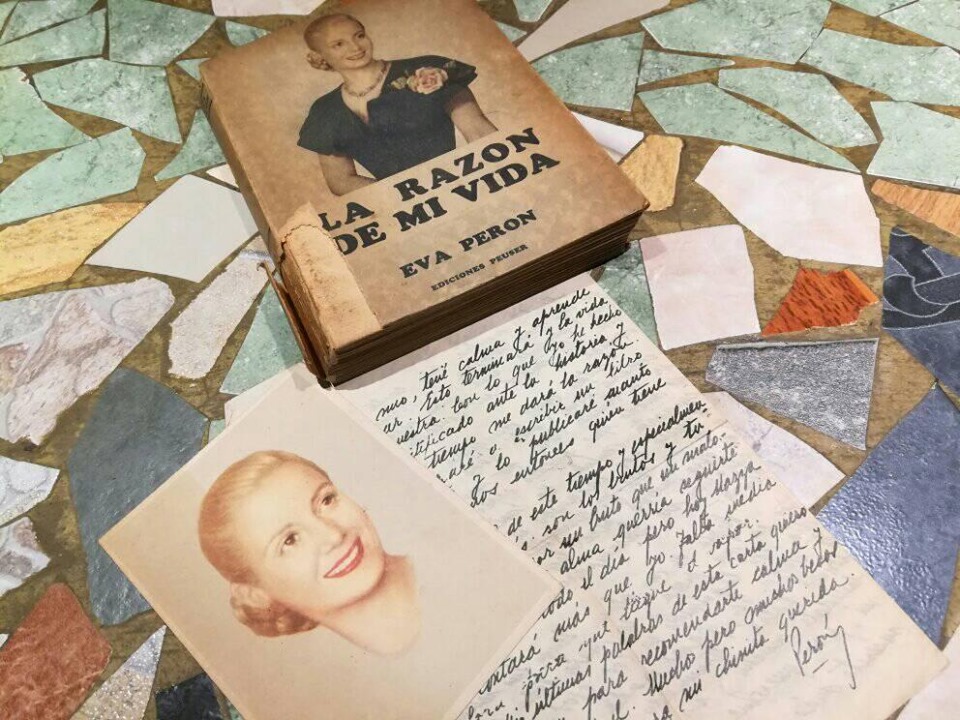 LA RAZON
DE MI VIDA
EVA PERON
EDICIONES PEUSER
tené calma y aprende
Esto terminará y la vida
con lo que yo he hecho
ante la historia y
tiempo me dará la razón
a escribir un libro
y lo publicaré cuanto
entonces quien tiene
de este tiempo y especialmen
son los brutos y tu
un bruto que un malo.
alma querría seguirte
todo el día pero hoy Mazza
contará más que yo falta media
hora para que zarpe el vapor.
últimas palabras de esta carta quiero
para recomendarte calma y
Mucho pero muchos besos
para mi chinita querida.
Perón